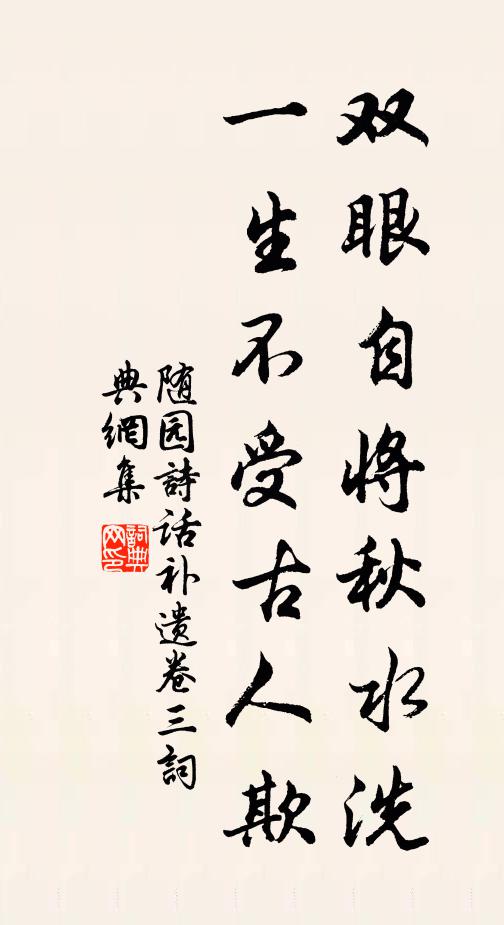 双眼自将秋水洗
一生不受古人欺
随园詩话补遗卷三詞
典網集
詞典网印